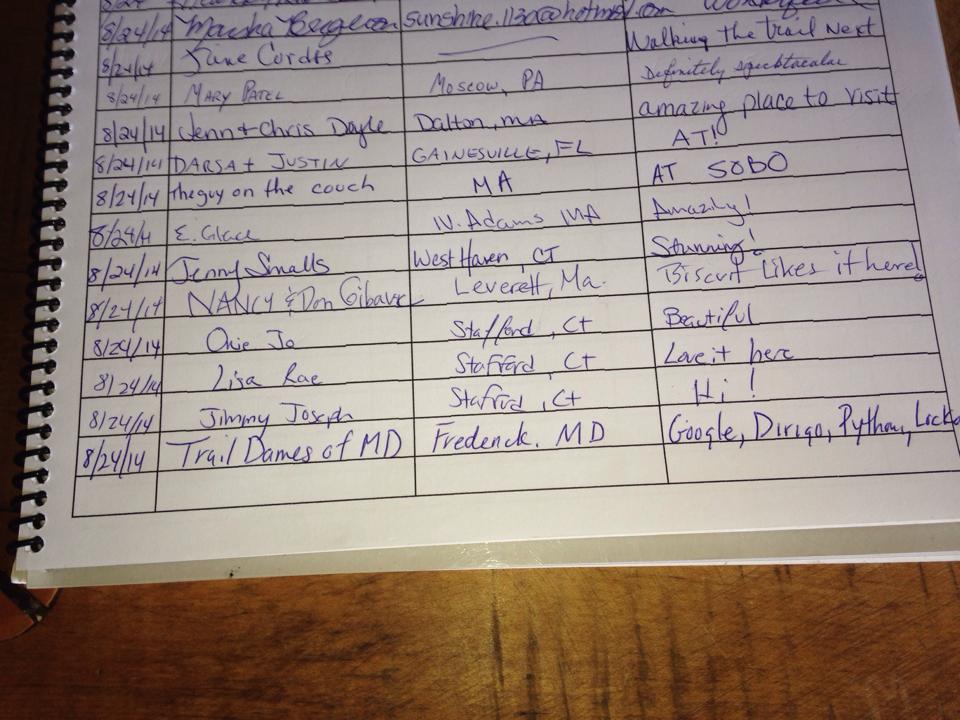 8/24/14 Marsha Bergeron sunshine.1130@hotmail.com
8/24/14 Jane Cordts Walking the trail next
8/24/14 Mary Patel Moscow, PA Definitely specktacular
8/24/14 Jenn + Chris Doyle Dalton, MA amazing place to visit
8/24/14 DARSA + JUSTIN GAINESVILLE, FL AT!
8/24/14 the guy on the couch MA AT SOBO
8/24/14 E. Glace N. Adams MA Amazing!
8/24/14 Jenny Smalls West Haven, CT Stunning!
8/24/14 NANCY & Don Leverett, Ma. Biscuit Likes it here!
8/24/14 Okie Jo Stafford, Ct Beautiful
8/24/14 Lisa Rae Stafford, Ct Love it here
8/24/14 Jimmy Joseph Stafford, Ct Hi!
8/24/14 Trail Dames of MD Frederick. MD Google, Dirigo, Python,